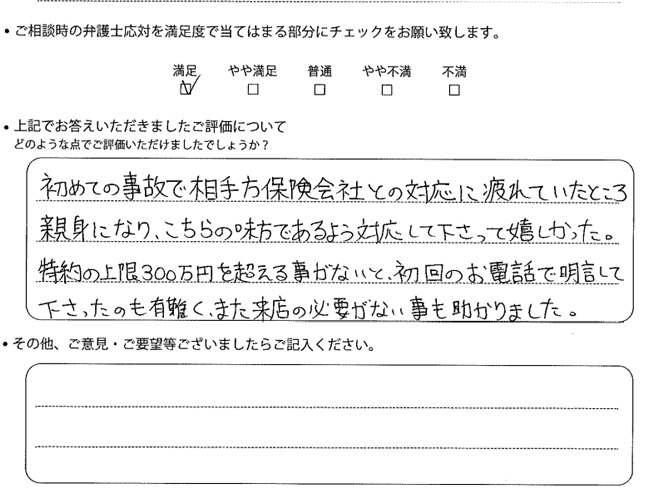 • ご相談時の弁護士応対を満足度で当てはまる部分にチェックをお願い致します。
満足 やや満足 普通 やや不満 不満
☑ □ □ □ □
• 上記でお答えいただきましたご評価について
どのような点でご評価いただけましたでしょうか？
初めての事故で相手方保険会社との対応に疲れていたところ
親身になり、こちらの味方であるよう対応して下さって嬉しかった。
特約の上限300万円を超える事がないと、初回のお電話で明言して
下さったのも有難く、また来店の必要がない事も助かりました。
• その他、ご意見・ご要望等ございましたらご記入ください。